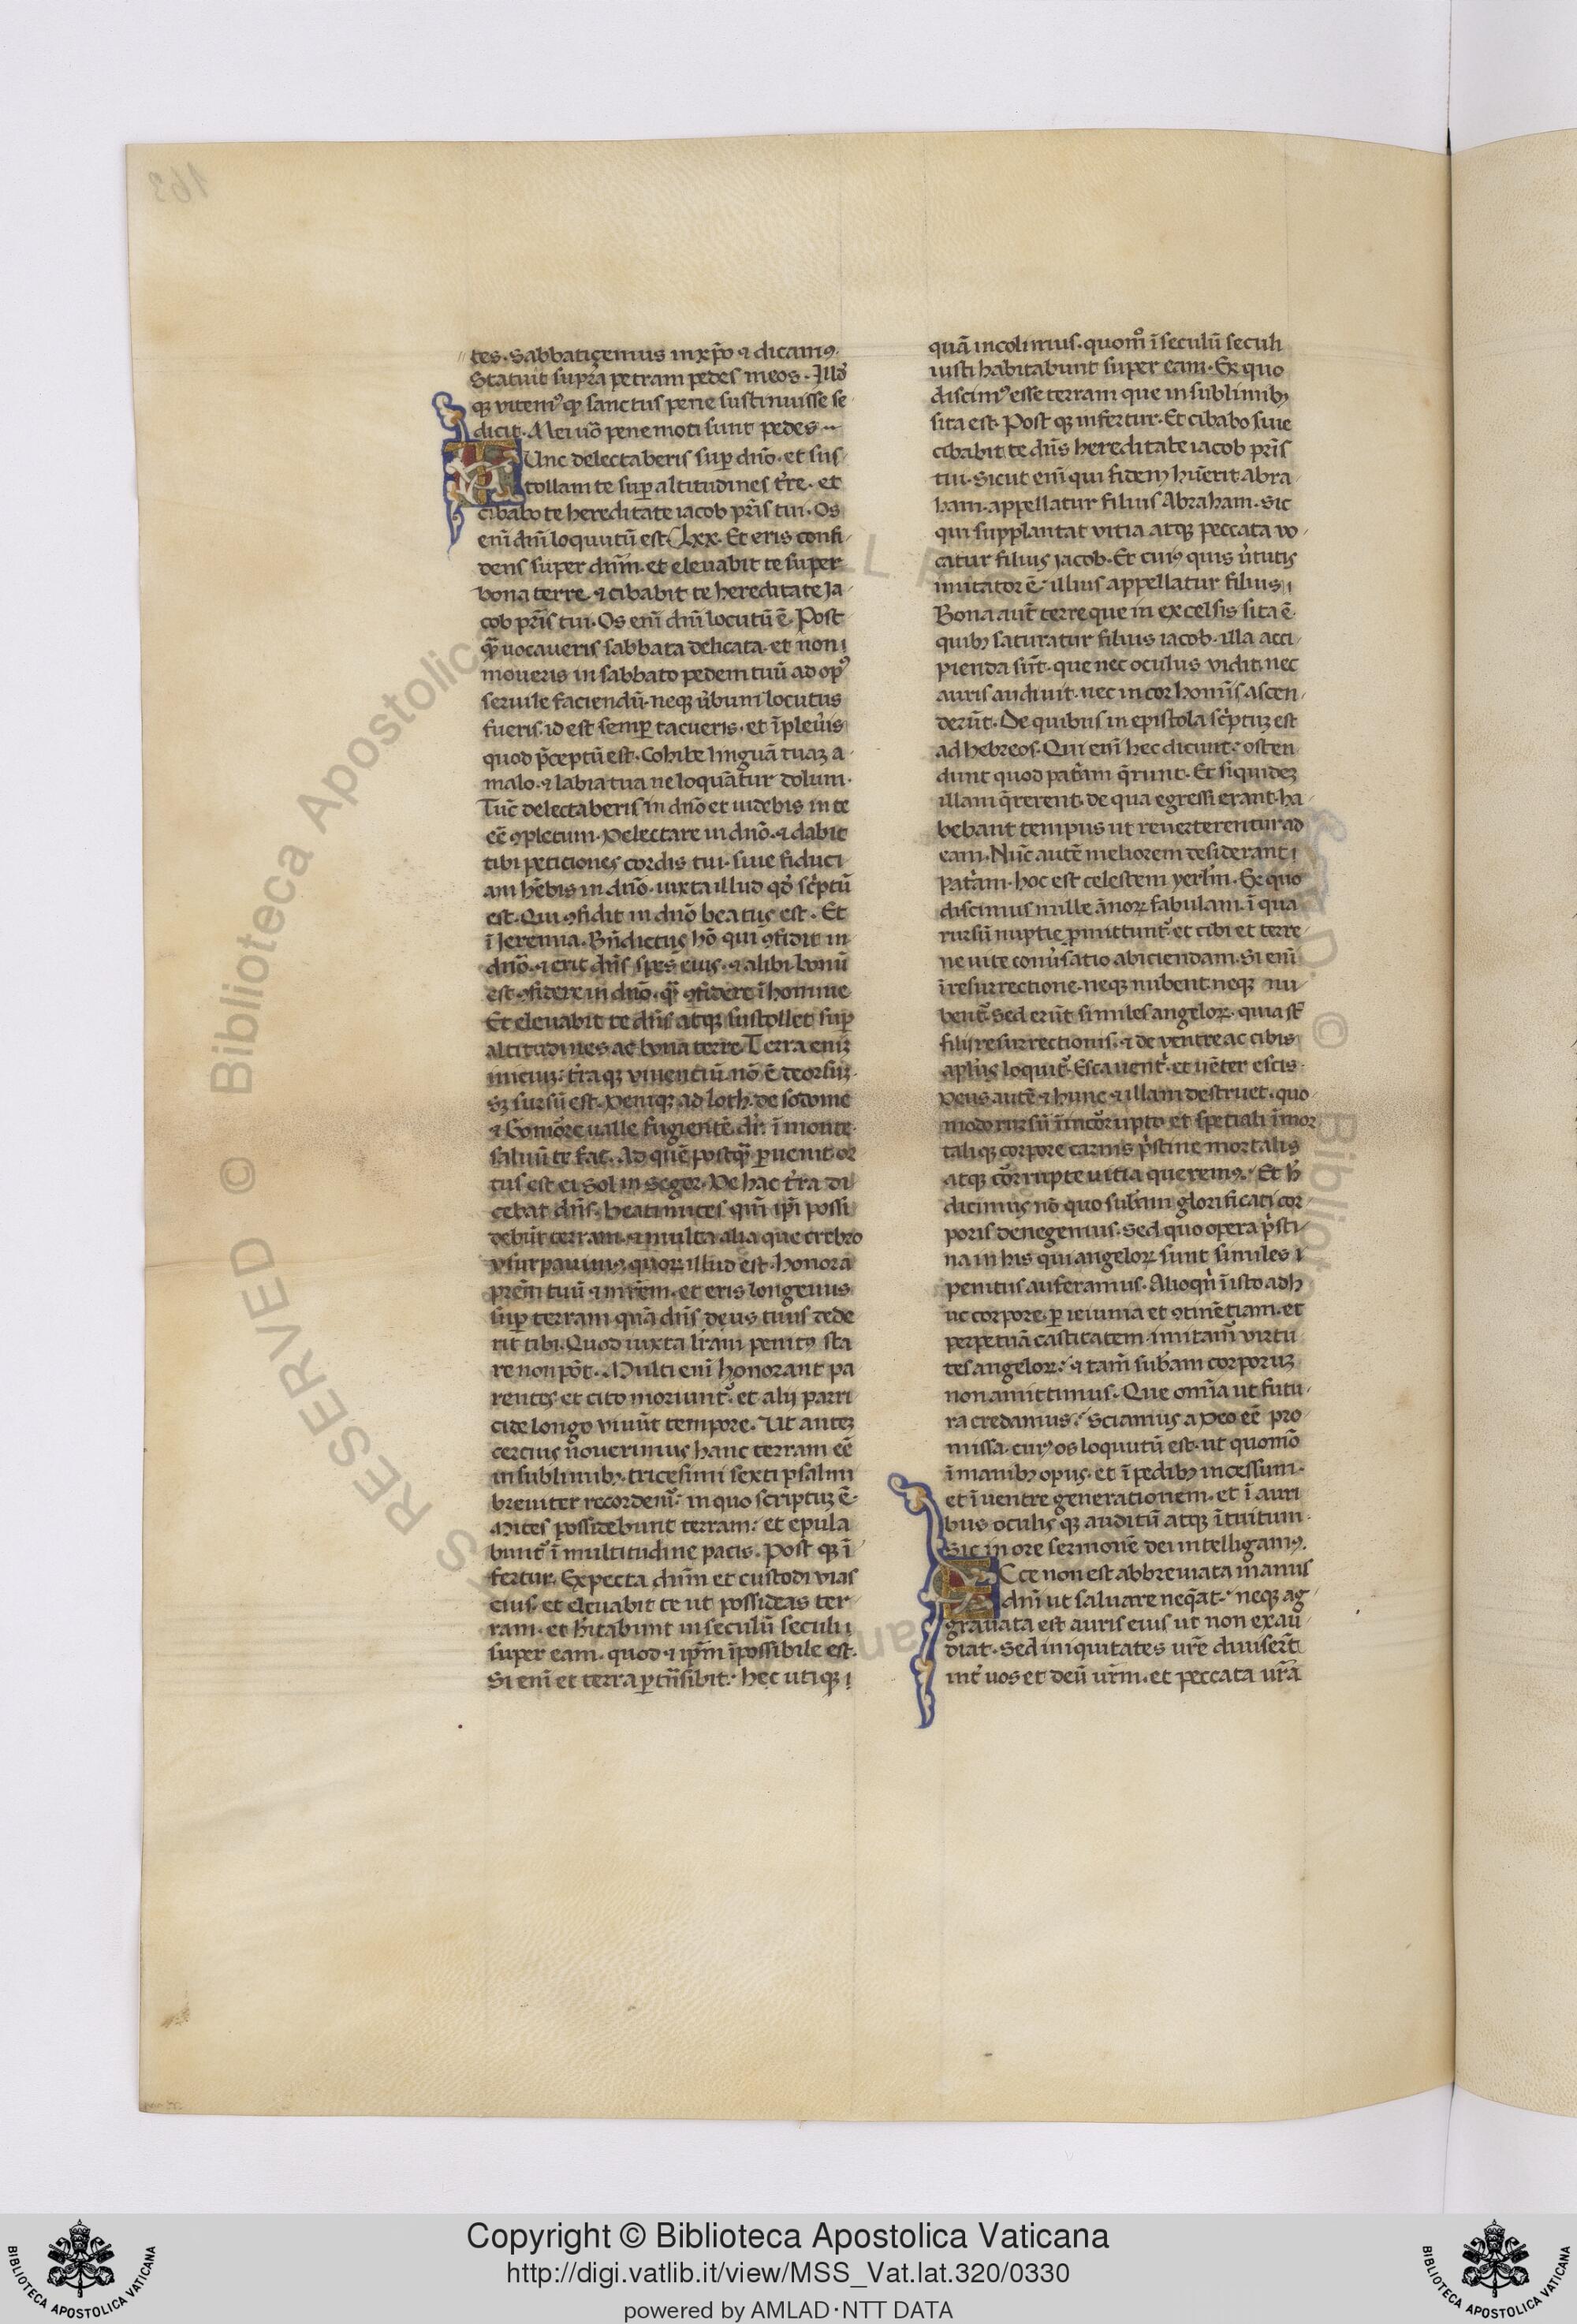 tes. Sabbatiçemus in xp̃o ⁊ dicamꝰ.
Statuit supͣra petram pedes meos. Illð
qȝ vitemꝰ qđ sanctus pene sustinuisse se
dicit. Mei uõ pene moti sunt pedes
Unc delectaberis suꝑ dño. et sus
tollam te suꝑ altitudines tr̃e. et
cibabo te hereditate iacob pr̃is tui. Os
enĩ dñi loquutũ est. Lxx. Et eris confi
dens super dñm. et eleuabit te super
bona terre. ⁊ cibabit te hereditate Ja
cob pr̃is tui. Os enĩ dñi locutũ ẽ. Post
qͣ̃ uocaueris sabbata delicata. et non
moueris in sabbato pedem tuũ ad opꝰ
seruile faciendũ. neqȝ ủbum locutus
fueris. id est semꝑ tacueris. et ĩpleủis
quod p̃ceptũ est. Cohibe linguã tuaȝ a
malo. ⁊ labia tua ne loquãtur dolum.
Tũc delectaberis in dño et uidebis in te
eẽ ꝯpletum. Delectare in dño. ⁊ dabit
tibi peticiones cordis tui. siue fiduci
am hẽbis in dño. iuxta illud qđ sc̉ptũ
est. Qui ꝯfidit in dño beatus est. Et
ĩ Jeremia. Bñdictus hõ qui ꝯfidit in
dño. ⁊ erit dñs spes eius. ⁊ alibi bonũ
est ꝯfidere in dño. qͣ̃ ꝯfidere ĩ homine
Et eleuabit te dñs atqȝ sustollet suꝑ
altitudines ac bona terre. Terra eniȝ
mituȝ: tr̃aqȝ viuentiũ nõ ẽ deorsuȝ.
sȝ sursũ est. Deniqȝ ad loth. de sodome
⁊ Gomõre ualle fugientẽ dr̃: ĩ monte
saluũ te fac. Ad quẽ postqͣ̃ ꝑuenit or
tus est ei sol in segor. De hac tr̃a di
cebat dñs. beati mites qñi ip̃i possi
debũt terram. ⁊ multa alia que crebro
vsurpauimꝰ. quoꝝ illud est. honora
prẽm tuũ ⁊ mr̃em. et eris longeuus
suꝑ terram quã dñs deus tuus dede
rit tibi. Quod iuxta lr̃am penitꝰ sta
re non põt. Multi enĩ honorant pa
rentes. et cito moriunt᷑. et alij parri
cide longo viuũt tempore. Ut auteȝ
certius nouerimus hanc terram eẽ
in sublimibȝ. tricesimi sexti psalmi
breuiter recordem᷑: in quo scriptuȝ ẽ.
Mites possidebunt terram: et epula
bunt᷑ ĩ multitudine pacis. Post qȝ ĩ
fertur. Expecta dñm et custodi vias
eius. et eleuabit te ut possideas ter
ram. et hĩtabunt in seculũ seculi
super eam. quod ⁊ ip̃m ĩpossibile est.
Si enĩ et terra ꝑtrãsibit: hec utiqȝ
quã incolimus. quomõ ĩ seculũ seculi
iusti habitabunt super eam. Ex quo
discimꝰ esse terram que in sublimibȝ
sita est. Post qȝ infertur. Et cibabo siue
cibabit te dñs hereditate iacob pr̃is
tui. Sicut enĩ qui fidem hũerit Abra
ham. appellatur filius Abraham. Sic
qui supplantat vitia atqȝ peccata vo
catur filius Jacob. Et cuiꝰ quis ủtutis
imitator ẽ: illius appellatur filius
Bona aut̃ terre que in excelsis sita ẽ.
quibȝ saturatur filius iacob. illa acci
pienda sũt. que nec oculus vidit nec
auris audiuit. nec in cor homĩs ascen
derũt. De quibus in epistola sc̉ptuȝ est
ad hebreos. Qui enĩ hec dicunt: osten
dunt quod patr̃am q̃runt. Et siquideȝ
illam q̃rerent. de qua egressi erant. ha
bebant tempus ut reuerterentur ad
eam. Nũc autẽ meliorem desiderant
patr̃am. hoc est celestem yerl̃m. Ex quo
discimus mille ãnoꝝ fabulam. ĩ qua
rursũ nuptie ꝓmittunt᷑. et cibi et terre
ne uite conủsatio abiciendam. Si enĩ
ĩ resurrectione. neqȝ nubent. neqȝ nu
bent᷑. Sed erũt similes angeloꝝ. quia st̃
filij resurrectionis. ⁊ de ventre ac cibis
apl̃us loquit᷑. Esca uent̉. et uẽter escis.
Deus autẽ ⁊ hunc ⁊ illam destruet. quo
modo rursũ ĩ ĩncõrupto et spetiali ĩmor
taliqȝ corpore carnis p̉stine mortalis
atqȝ cõrrupte uitia queremꝰ. Et h̃
dicimus nõ quo sub̃am glorificati cor
poris denegemus. Sed quo opera p̉sti
na in his qui angeloꝝ sunt similes
penitus auferamus. Alioqủi ĩ isto adh
uc corpore. ꝑ ieiunia et ꝯtinẽtiam. et
perpetuã castitatem. imitam᷑ virtu
tes angeloꝝ: ⁊ tam̃ sub̃am corporuȝ
non amittimus. Que om̃ia ut futu
ra credamus: Sciamus a Deo eẽ pro
missa. cuiꝰ os loquutũ est. ut quomõ
ĩ manibȝ opus. et ĩ pedibȝ incessum.
et ĩ uentre generationem. et ĩ auri
bus oculis qȝ auditũ atqȝ ĩtuitum.
Sic in ore sermonẽ dei intelligamꝰ.
ECce non est abbreuiata manus
dñi ut saluare neq̃at: neqȝ ag
grauata est auris eius ut non exau
diat. Sed iniquitates ur̃e diuiserũt
int̉ uos et deũ ur̃m. et peccata ur̃a
Copyright © Biblioteca Apostolica Vaticana
http://digi.vatlib.it/view/MSS_Vat.lat.320/0330
powered by AMLAD·NTT DATA